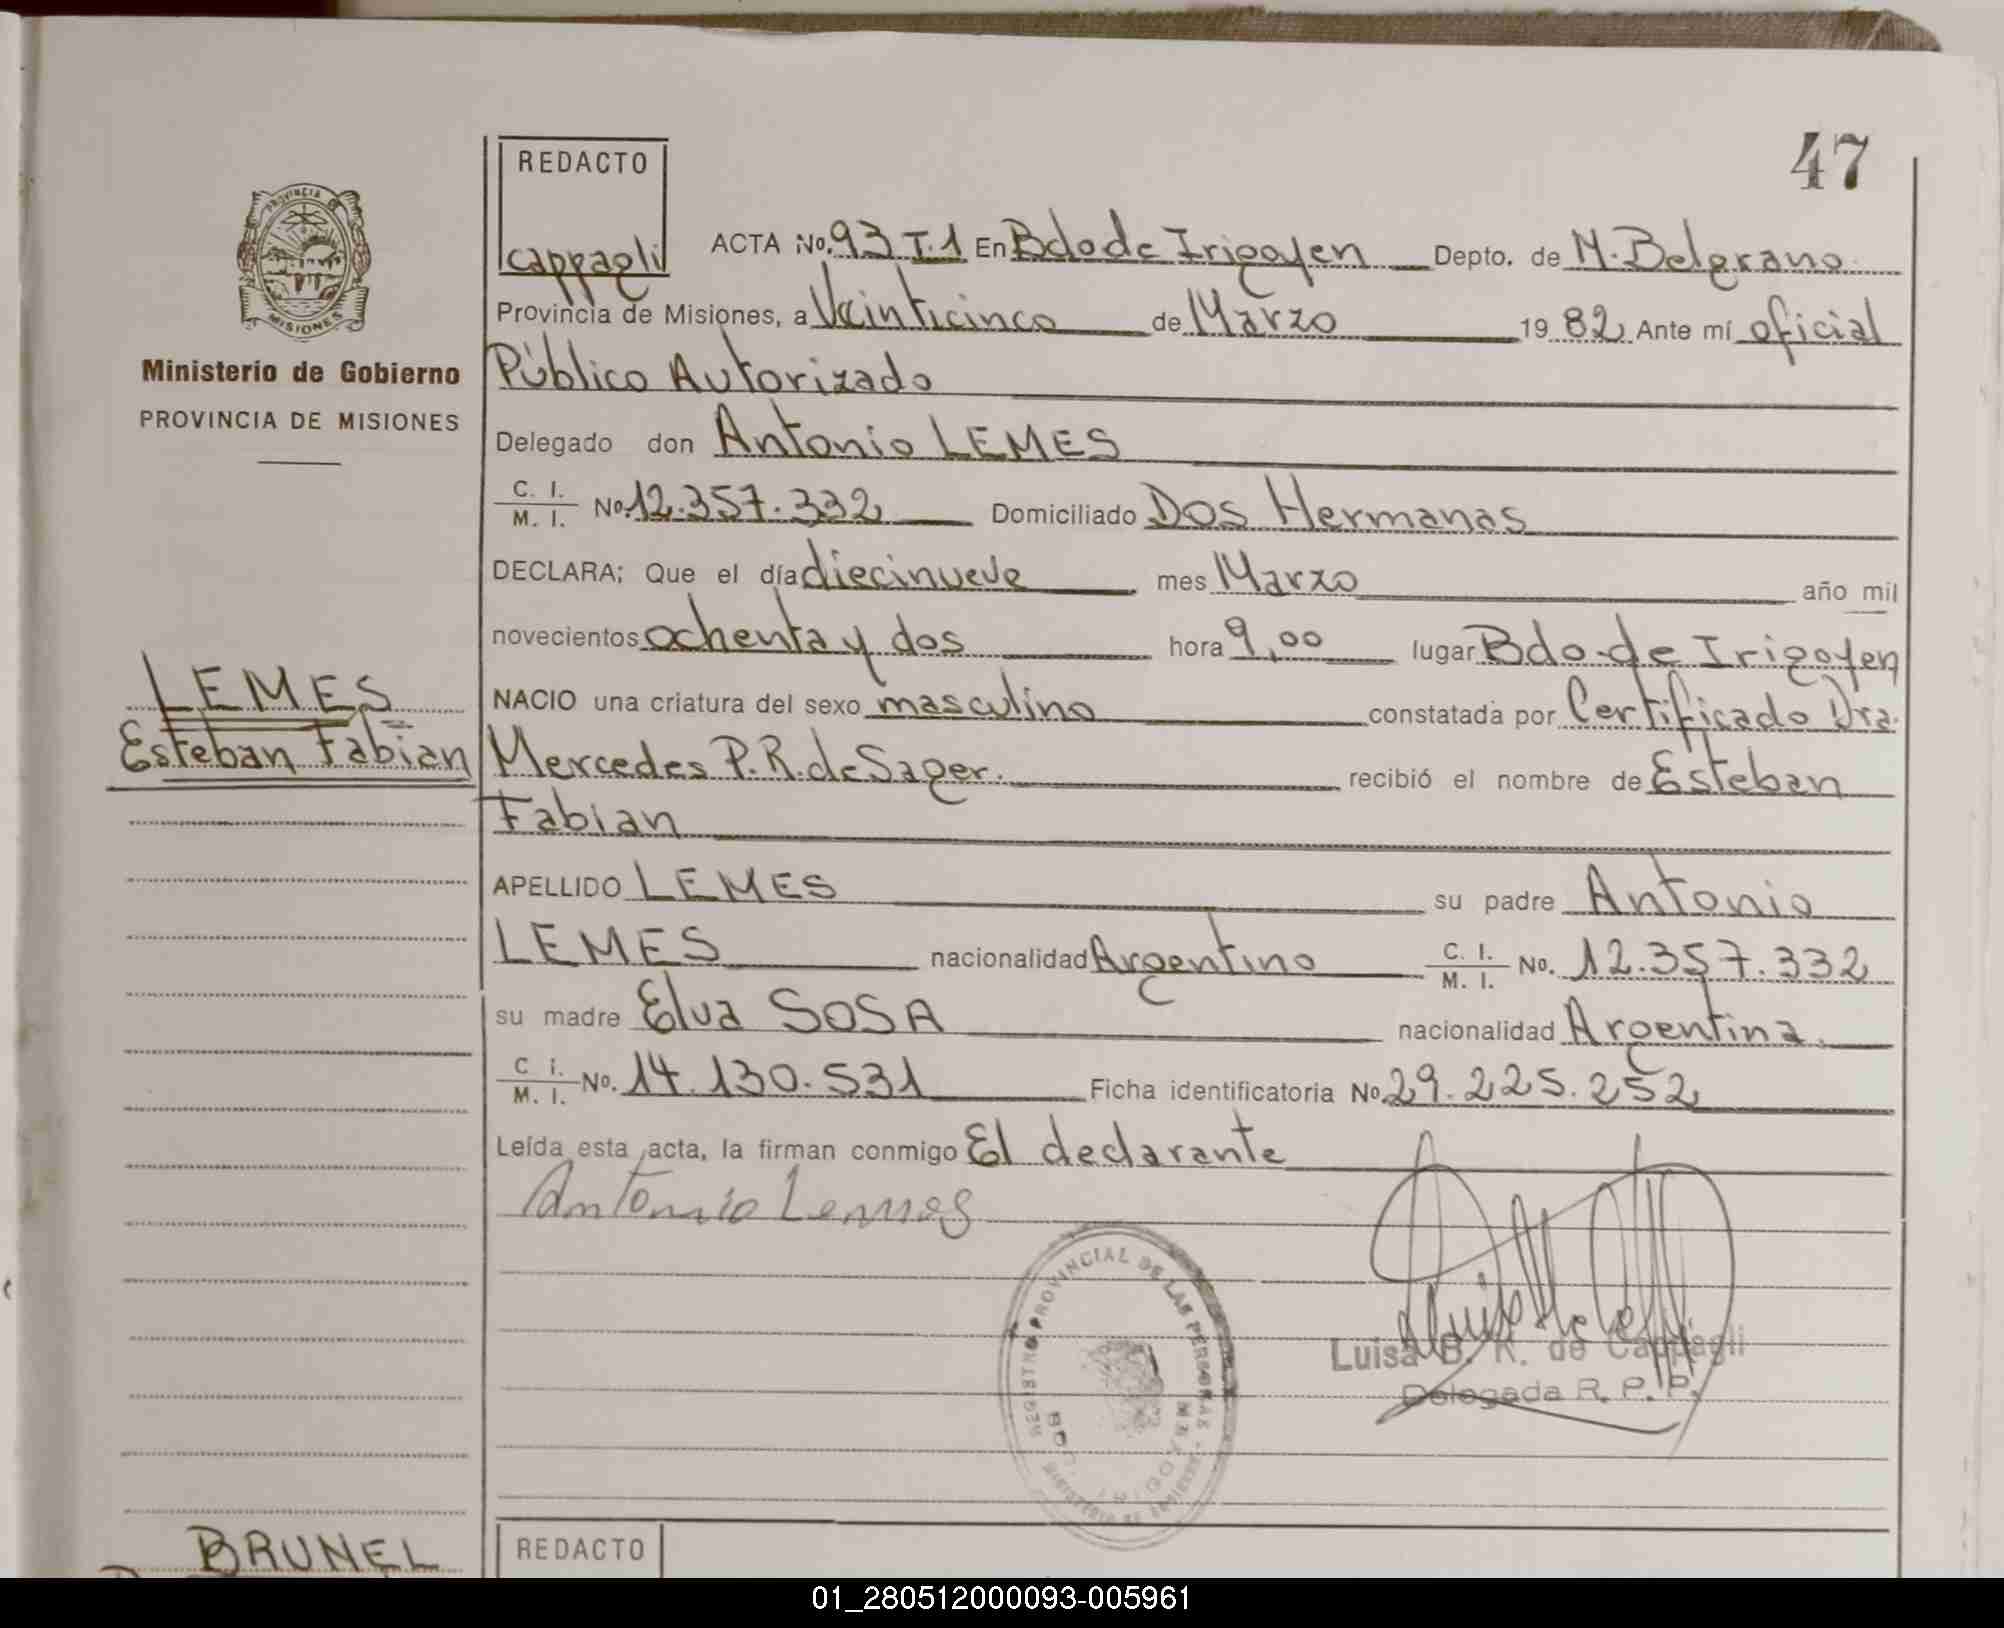 47
REDACTO
cappagli
ACTA No. 93 T.1 En Bdo de Irigoyen Depto. de M. Belgrano
Provincia de Misiones, a Veinticinco de Marzo 19 82 Ante mí oficial
Público Autorizado
Delegado don Antonio LEMES
C. I. / M. I. No. 12.357.332 Domiciliado Dos Hermanas
DECLARA; Que el día diecinueve mes Marzo año mil
novecientos ochenta y dos hora 9,00 lugar Bdo. de Irigoyen
NACIO una criatura del sexo masculino constatada por Certificado Dra.
Mercedes P.R. de Sager. recibió el nombre de Esteban
Fabian
APELLIDO LEMES su padre Antonio
LEMES nacionalidad Argentino C. I. / M. I. No. 12.357.332
su madre Elva SOSA nacionalidad Argentina.
C. i. / M. I. No. 14.130.531 Ficha identificatoria No. 29.225.252
Leída esta acta, la firman conmigo El declarante
Antonio Lemes
PROVINCIA DE
MISIONES
Ministerio de Gobierno
PROVINCIA DE MISIONES
LEMES
Esteban Fabian
REGISTRO PROVINCIAL DE LAS PERSONAS
BDO. IRIGOYEN
Luisa B. K. de Cappagli
Delegada R. P. P.
BRUNEL
REDACTO
01_280512000093-005961